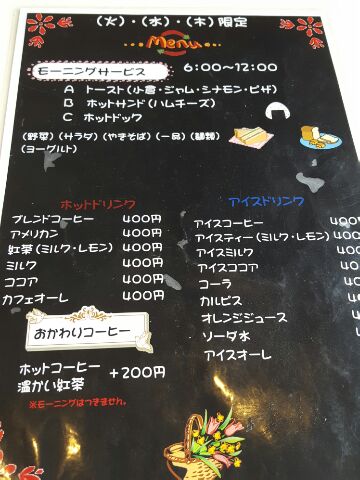 (火)・(水)・(木)限定
...Menu...
モーニングサービス 6:00〜12:00
A トースト(小倉・ジャム・シナモン・ピザ)
B ホットサンド(ハムチーズ)
C ホットドック
(野菜)(サラダ)(やきそば)(一品)(麺類)
(ヨーグルト)
ホットドリンク
ブレンドコーヒー 400円
アメリカン 400円
紅茶(ミルク・レモン) 400円
ミルク 400円
ココア 400円
カフェオーレ 400円
おかわりコーヒー
ホットコーヒー
温かい紅茶 +200円
※モーニングはつきません。
アイスドリンク
アイスコーヒー 400
アイスティー(ミルク・レモン) 400
アイスミルク 400
アイスココア 400
コーラ 400
カルピス 400
オレンジジュース 400
ソーダ水 400
アイスオーレ 400